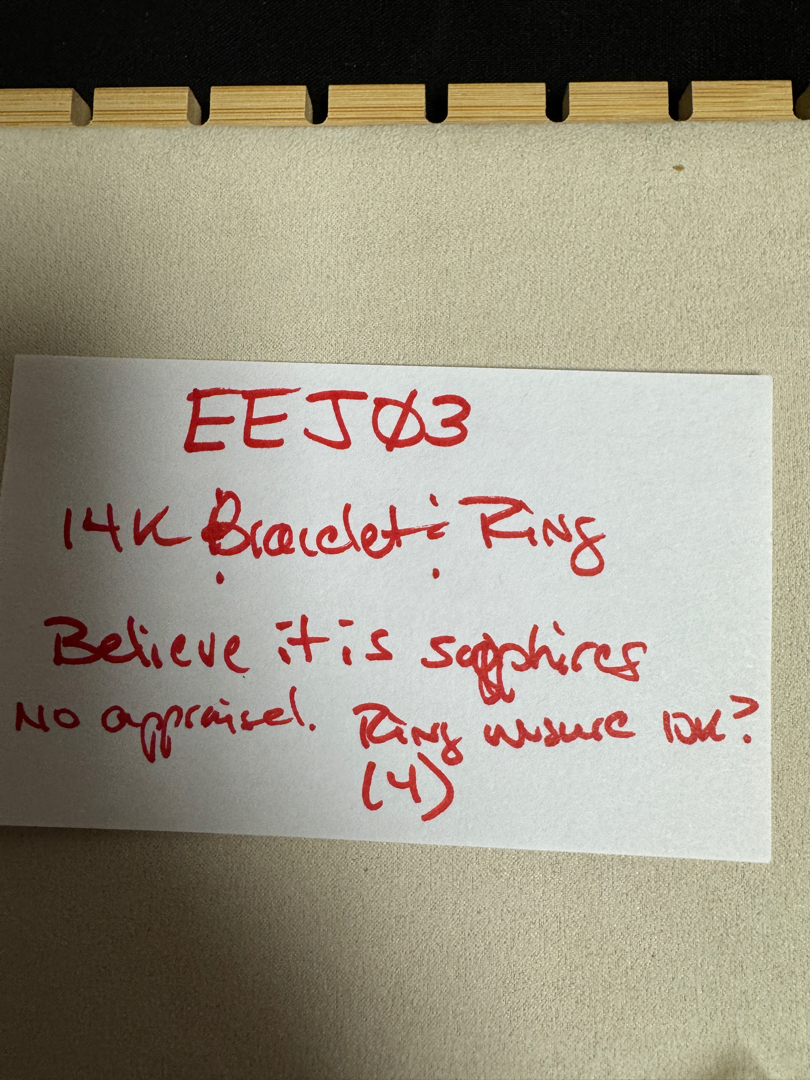 EEJØ3
14K Bracelet: Ring
Believe it is sapphires
No appraisel. Ring unsure 10K?
(4)